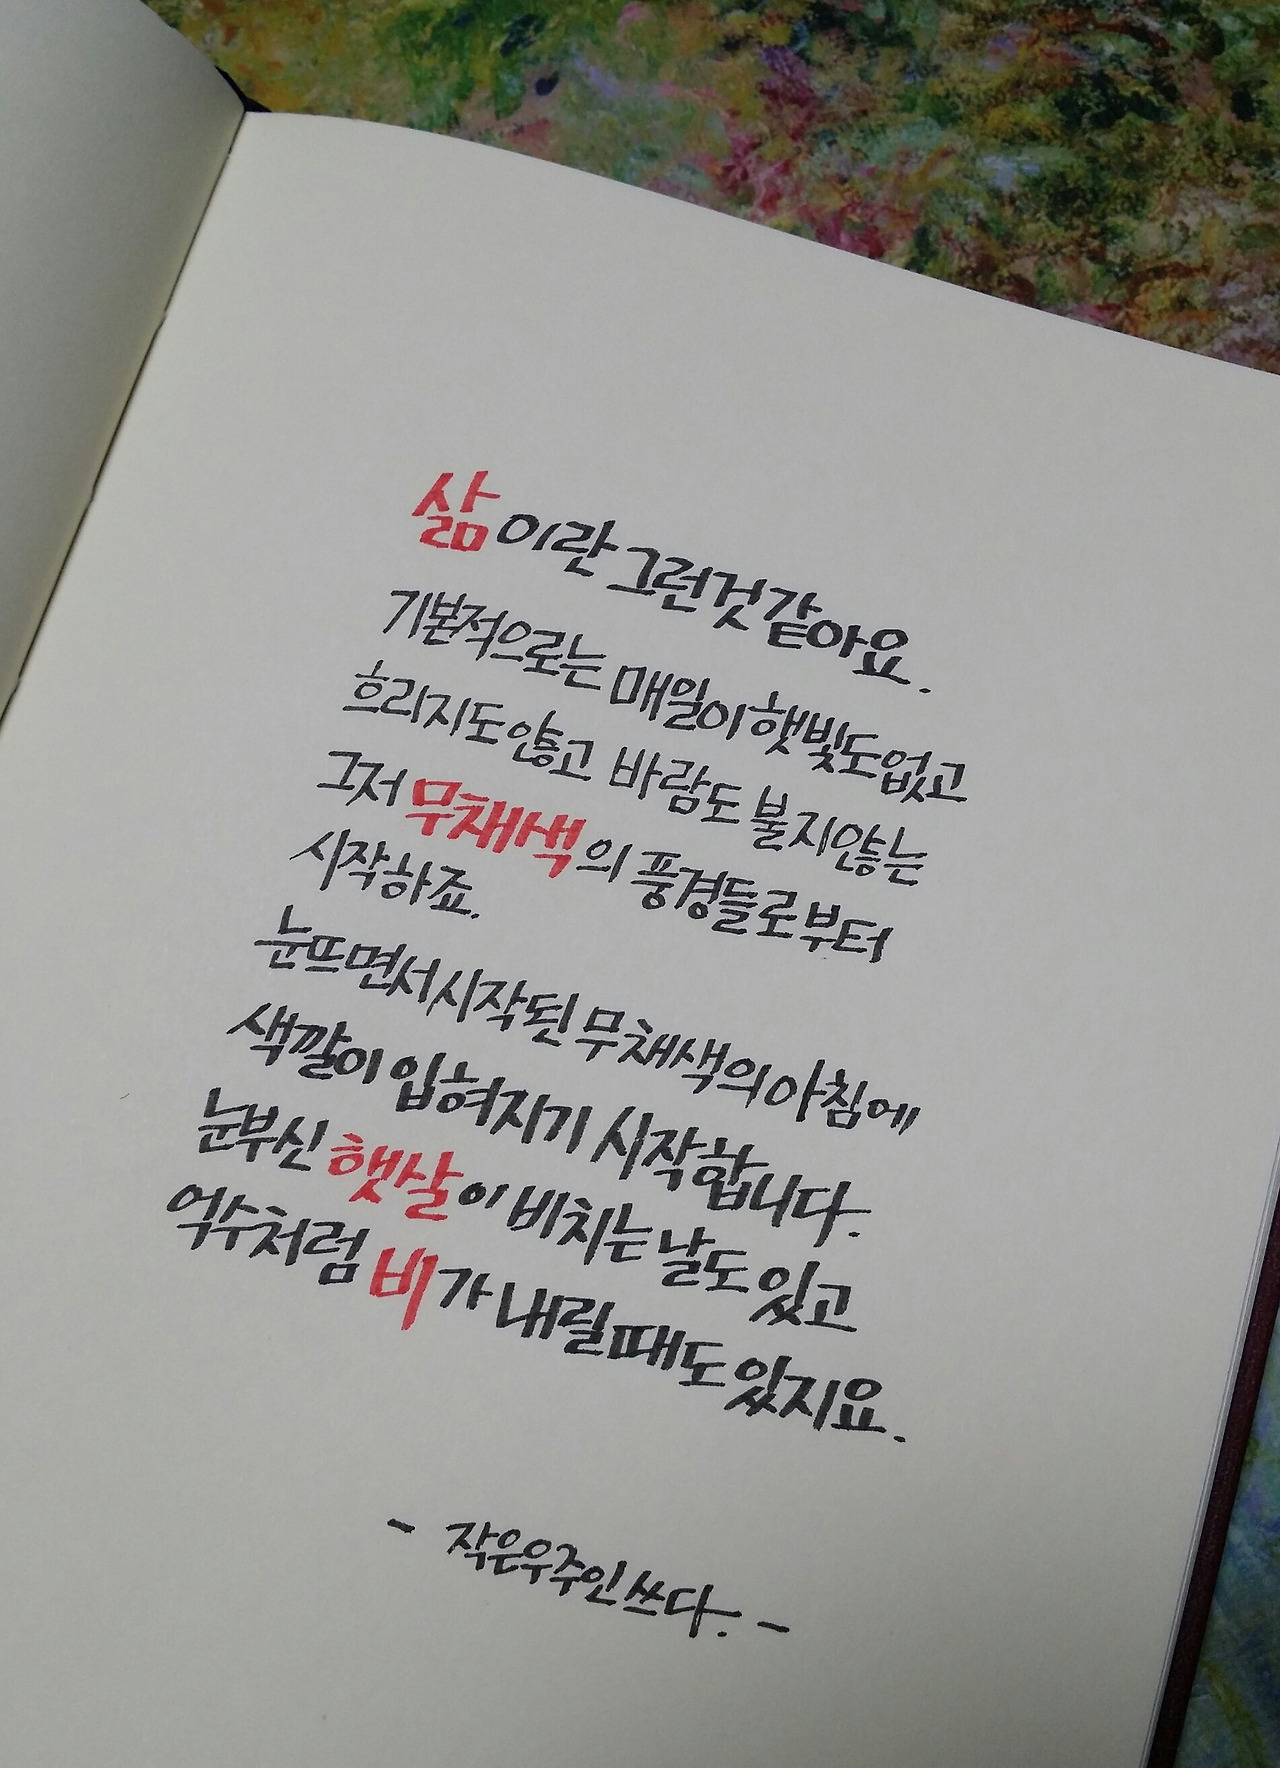 삶이란 그런것 같아요.
기본적으로는 매일이 햇빛도 없고
흐리지도 않고 바람도 불지않는
그저 무채색의 풍경들로부터
시작하죠.
눈뜨면서 시작된 무채색의 아침에
색깔이 입혀지기 시작합니다.
눈부신 햇살이 비치는 날도 있고
억수처럼 비가 내릴때도 있지요.
- 작은우주인 쓰다. -